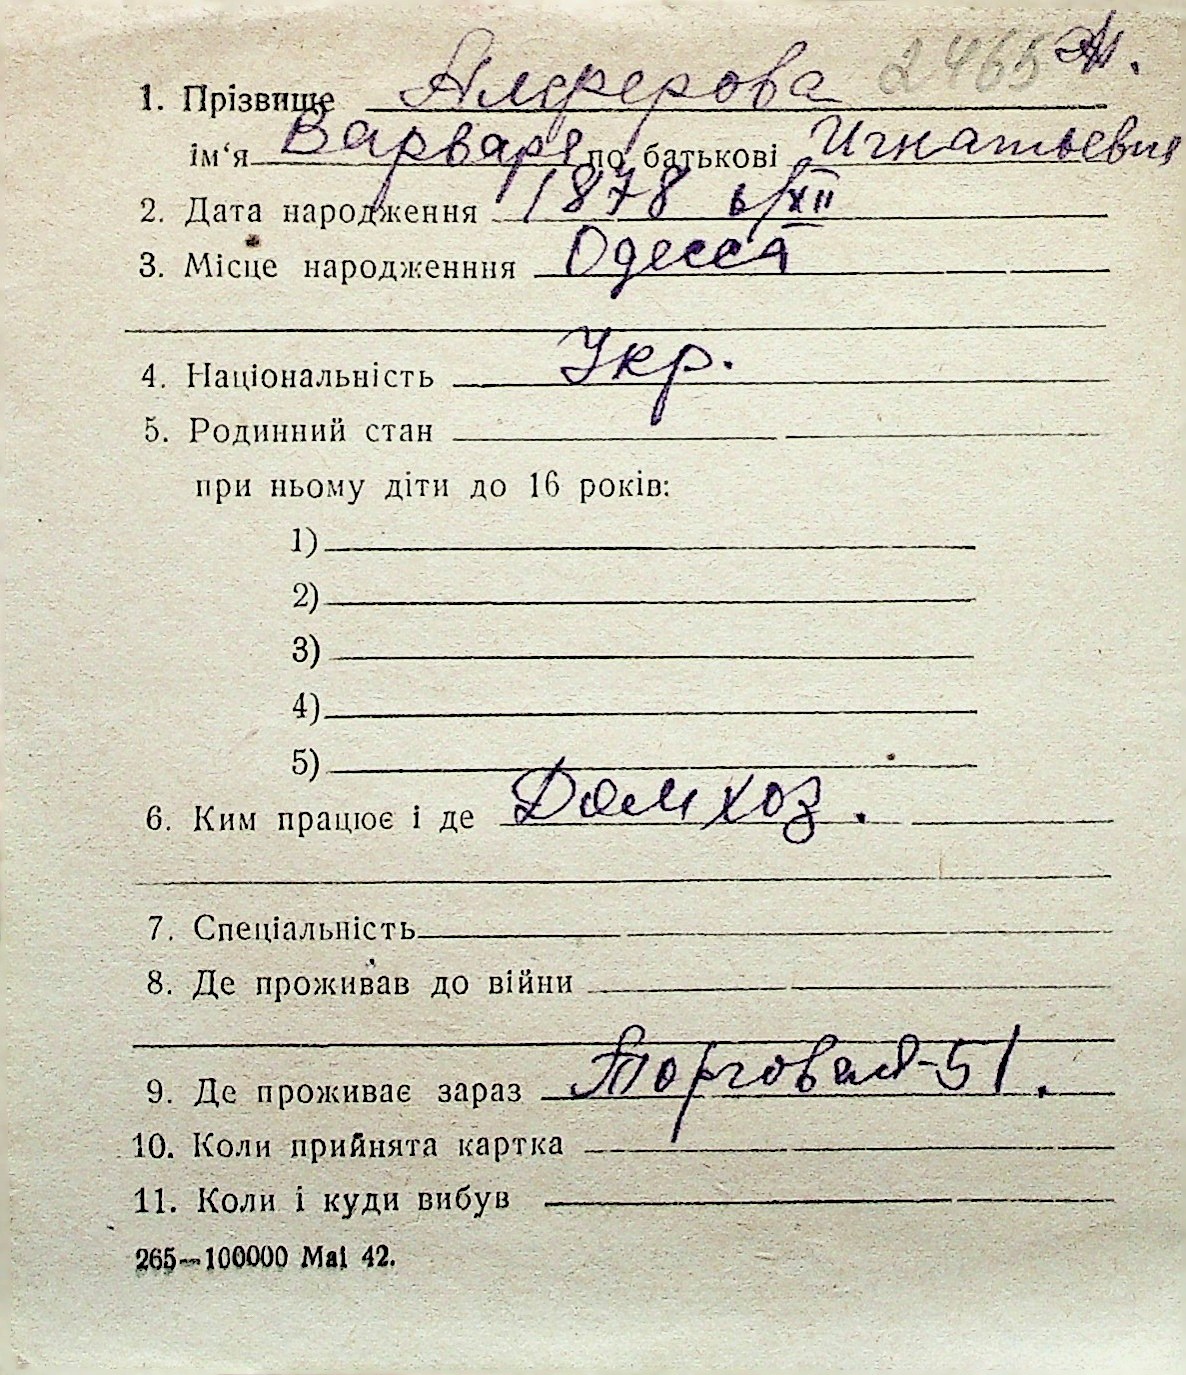 2465 Ж.
1. Прізвище Алферова
ім‘я Варвара по батькові Игнатьевна
2. Дата народження 1878 6/XII
3. Місце народженння Одесса
4. Національність Укр.
5. Родинний стан
при ньому діти до 16 років:
1)
2)
3)
4)
5)
6. Ким працює і де Дом хоз.
7. Спеціальність
8. Де проживав до війни
9. Де проживає зараз Торговая-51.
10. Коли прийнята картка
11. Коли і куди вибув
265—100000 Mai 42.